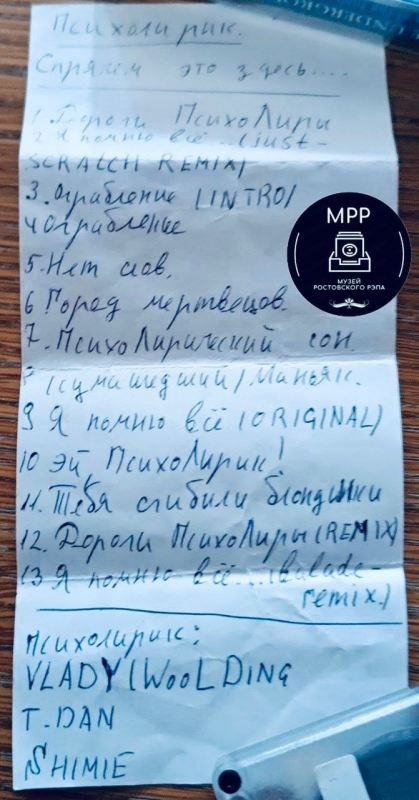 Психолирик.
Спрячем это здесь....
1. Дороги ПсихоЛиры
2. Я помню всё... (just-
SCRATCH REMIX)
3. Ограбление (INTRO)
4 Ограбление
5. Нет слов.
6 Город мертвецов.
7. ПсихоЛирический сон.
8 (сумашедший) Маньяк.
9 Я помню всё (ORIGINAL)
10 Эй, ПсихоЛирик!
11. Тебя сгубили блондинки
12. Дороги ПсихоЛиры (REMIX)
13 Я помню всё...(balade-
remix.)
Психолирик:
VLADY (WooLDiNG
T.DAN
SHIMIE
МРР
МУЗЕЙ
РОСТОВСКОГО РЭПА